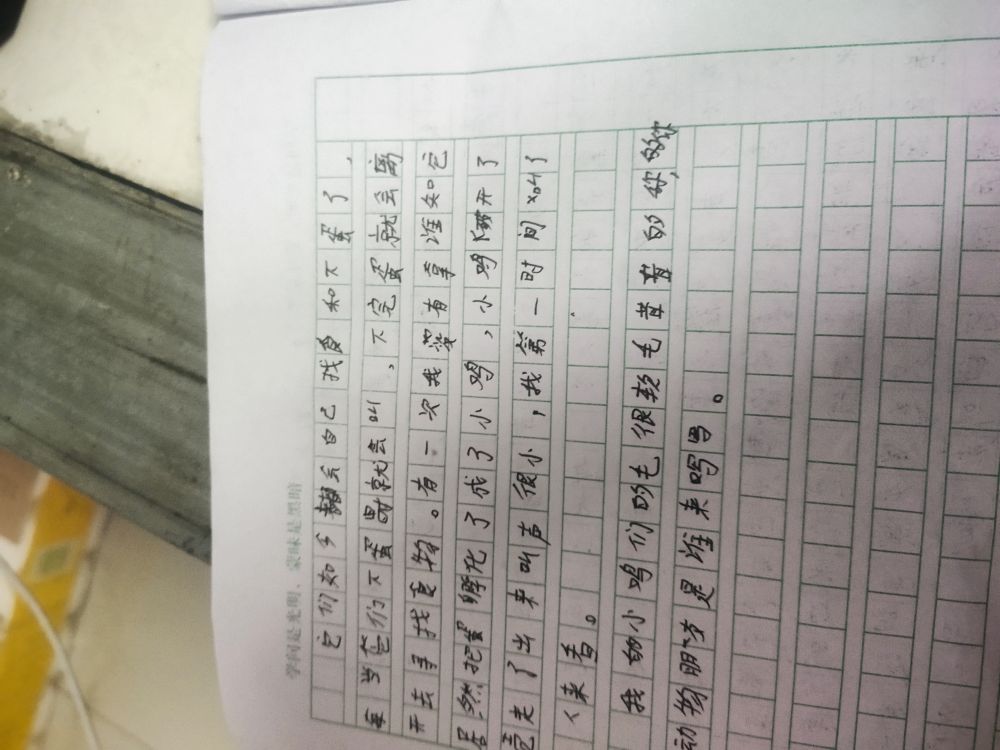 学问是光明，蒙昧是黑暗
它们如今都会自己找食和下蛋了，
每当它们下蛋时就会叫，下完蛋就会离
开去寻找食物。有一次我没有拿谁知它
居然把蛋孵化了成了小鸡，小鸡睁开了
竟走了出来叫声很小，我第一时间叫了
人来看。
我的小鸡们的毛很软毛茸茸的你的
动物朋友是谁来吗